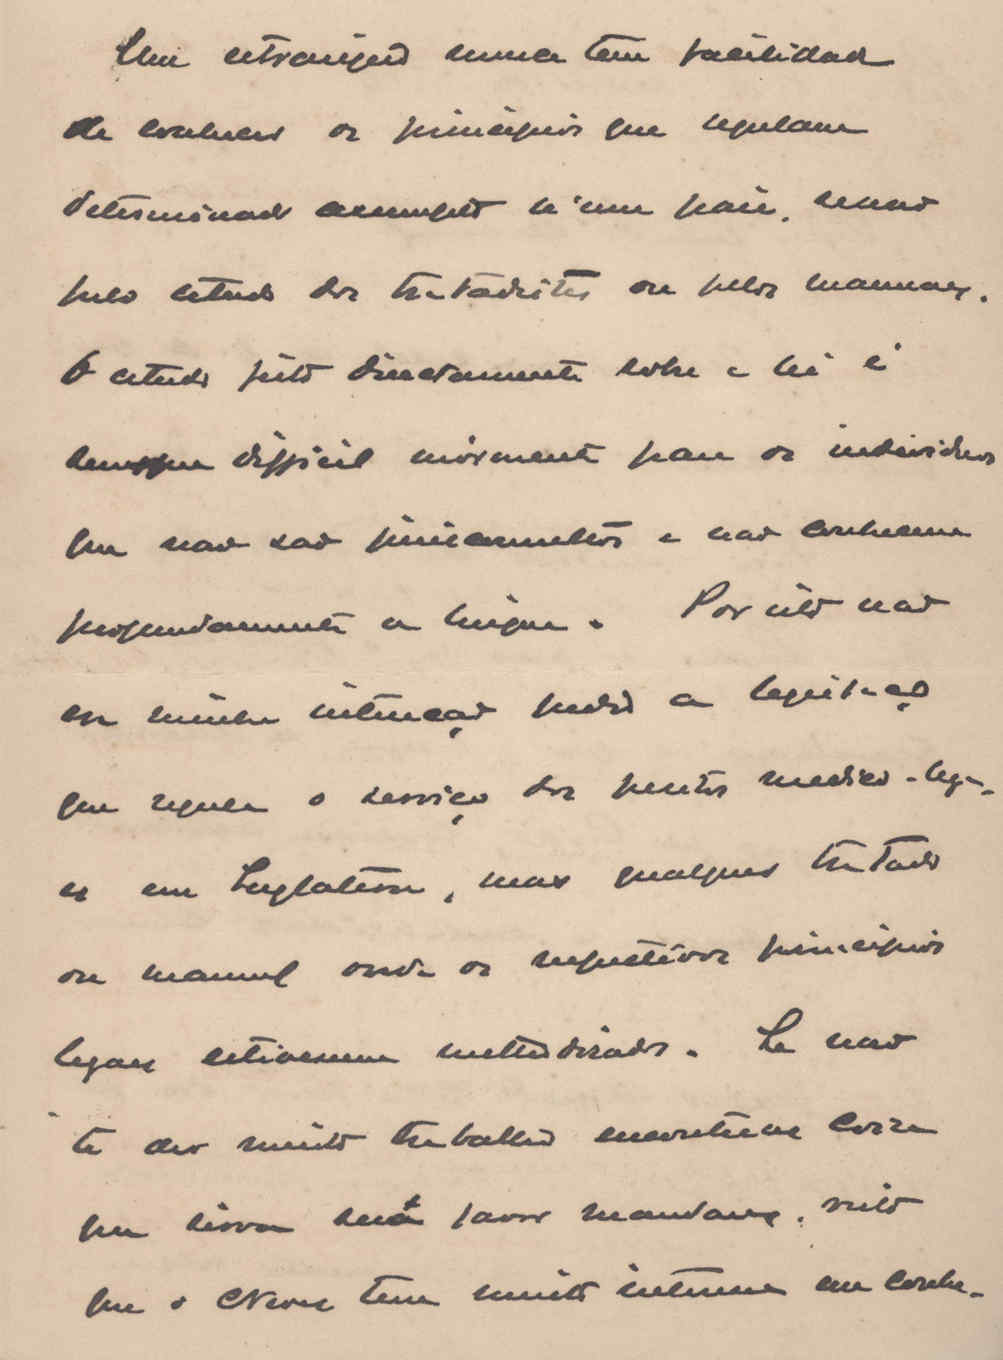 Um estrangeiro nunca tem facilidade
de conhecer os principios que regulam
determinado assumpto n'um paiz, senão
pelo estudo dos tratadistas ou pelos manuaes.
O estudo feito directamente sobre a lei é
sempre difficil mórmente para os individuos
que não são jurisconsultos e não conhecem
profundamente a lingua. Por isto não
era minha intenção pedir a legislação
que regula o serviço dos peritos medico-lega-
es em Inglaterra, mas qualquer tratado
ou manual onde os respectivos principios
legaes estivessem methodisados. Se não
te der muito trabalho encontrar coisa
que sirva será favor mandares, visto
que o Neves tem muito interesse em conhe-